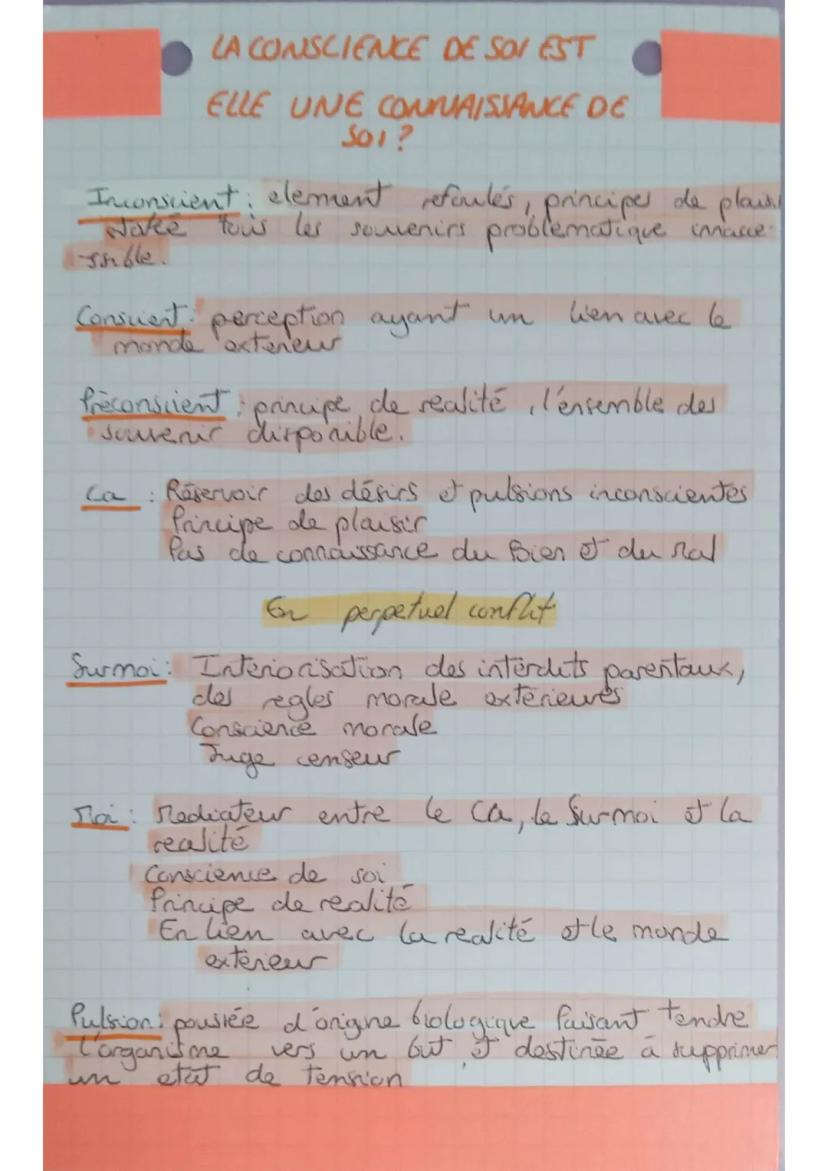 LA CONSCIENCE DE SOI EST
ELLE UNE CONNAISSANCE DE
SOI?
Inconscient : element refoulés, principes de plaisi
stoké tous les souvenirs problematique innacce-
ssible.
Conscient : perception ayant un lien avec le
monde exterieur
Préconscient : principe de realité, l'ensemble des
souvenir disponible.
Ca : Réservoir des désirs et pulsions inconscientes
Principe de plaisir
Pas de connaissance du Bien et du Mal
En perpetuel conflit
Surmoi : Interiorisation des interdits parentaux,
des regles morale extérieures
Conscience morale
Juge censeur
Moi : Mediateur entre le Ca, le Surmoi et la
realité
Conscience de soi
Principe de realité
En lien avec la realité et le monde
extérieur
Pulsion : poussée d'origine biologique faisant tendre
l'organisme vers un but et destinée à supprimer
un etat de tension